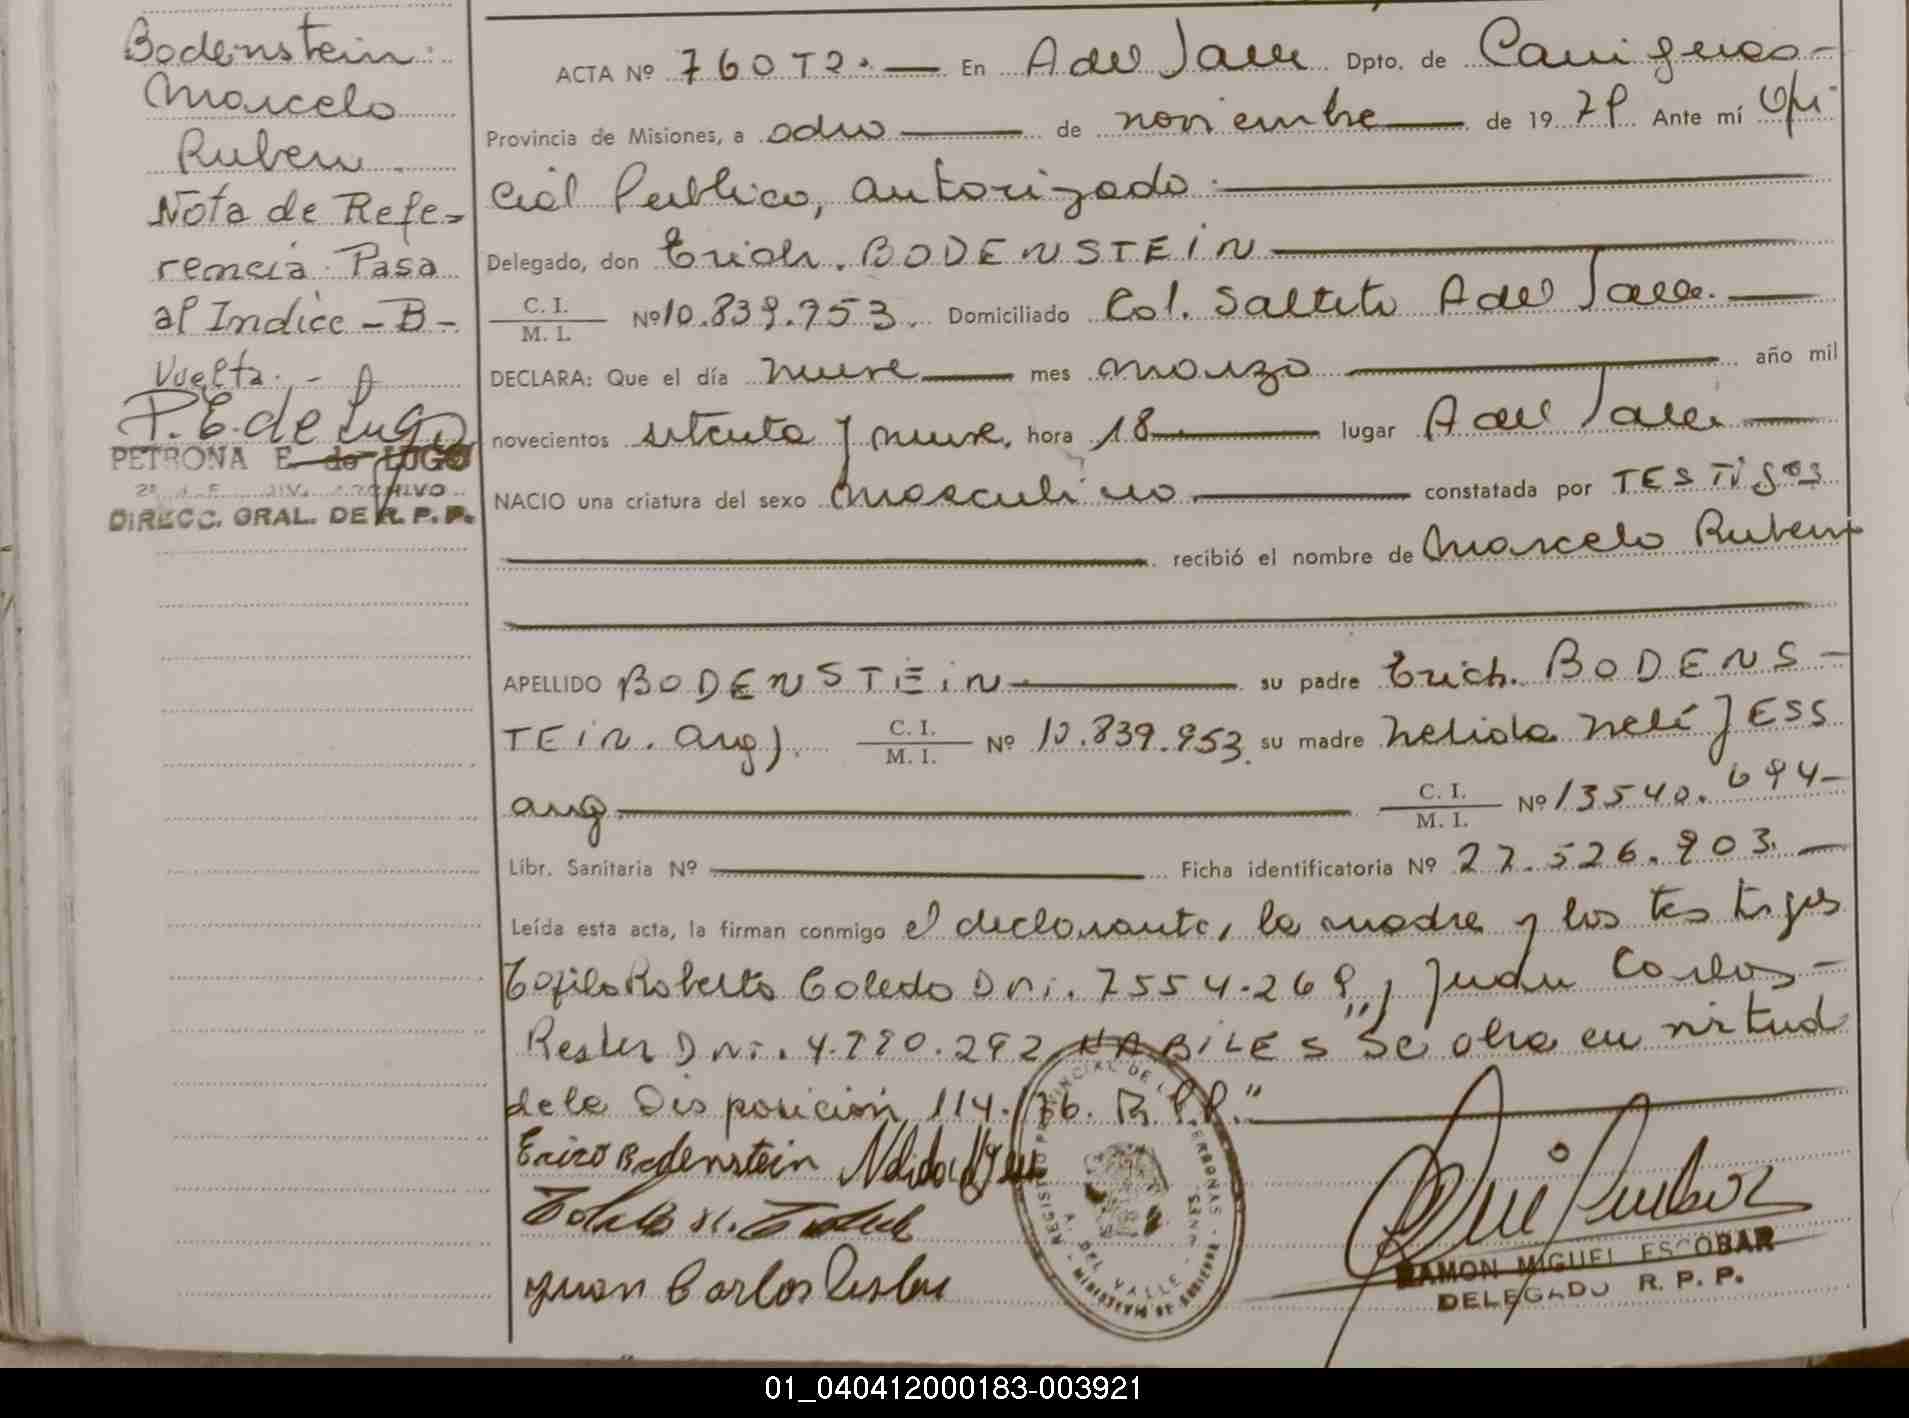 Bodenstein
Marcelo
Ruben
Nota de Refe-
rencia Pasa
al Indice - B -
Vuelta. -
P. E. de Lugo
PETRONA E. de LUGO
ARCHIVO
DIRECC. GRAL. DE R. P. P.
ACTA Nº 760 T2. — En A del Valle Dpto. de Cainguas -
Provincia de Misiones, a ocho — de noviembre — de 1979 Ante mí Ofi
cial Publico, autorizado —
Delegado, don Erich. BODENSTEIN —
C. I. / M. I. Nº 10.839.953. Domiciliado Col. Saltito A del Valle. —
DECLARA: Que el día nueve — mes marzo — año mil
novecientos setenta y nueve, hora 18 — lugar A del Valle —
NACIO una criatura del sexo masculino — constatada por TESTigos
— recibió el nombre de Marcelo Ruben
APELLIDO BODENSTEIN — su padre Erich. BODENS -
TEIN. arg). C. I. / M. I. Nº 10.839.953. su madre Nelida Neli JESS
arg — C. I. / M. I. Nº 13540.694 -
Libr. Sanitaria Nº — Ficha identificatoria Nº 27.526.903. —
Leída esta acta, la firman conmigo el declarante, la madre y los testigos
Tofilo Roberto Toledo Dni. 7554.269, Juan Carlos -
Resler Dni. 4.990.292 HABILES "Se obra en virtud
de la Disposicion 114./76. R. P. P." —
Erico Bodenstein Nelida N Jess
Juan Carlos Resler
REGISTRO PROVINCIAL DE LAS PERSONAS - MISIONES
A. DEL VALLE
MINISTERIO DE GOBIERNO
RAMON MIGUEL ESCOBAR
DELEGADO R. P. P.
01_040412000183-003921